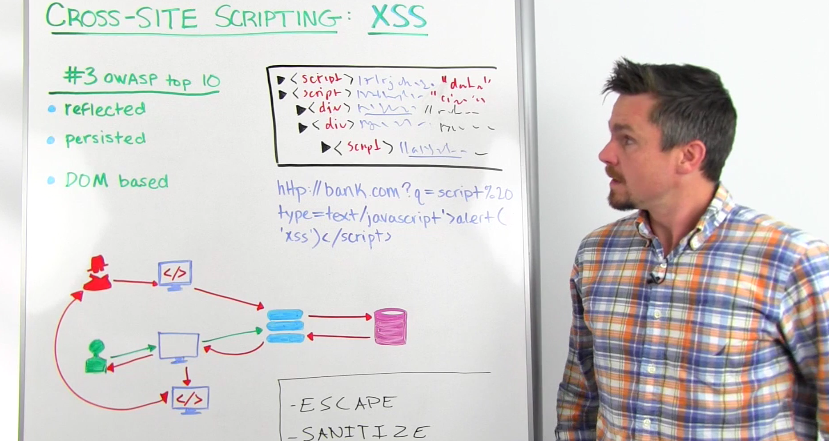 CROSS-SITE SCRIPTING: XSS
#3 OWASP TOP 10
reflected
persisted
DOM based
<script> "data"
<script>
<div>
<div>
<script>
http://bank.com?q=script%20
type=text/javascript'>alert(
'xss')</script>
</>
</>
-ESCAPE
-SANITIZE